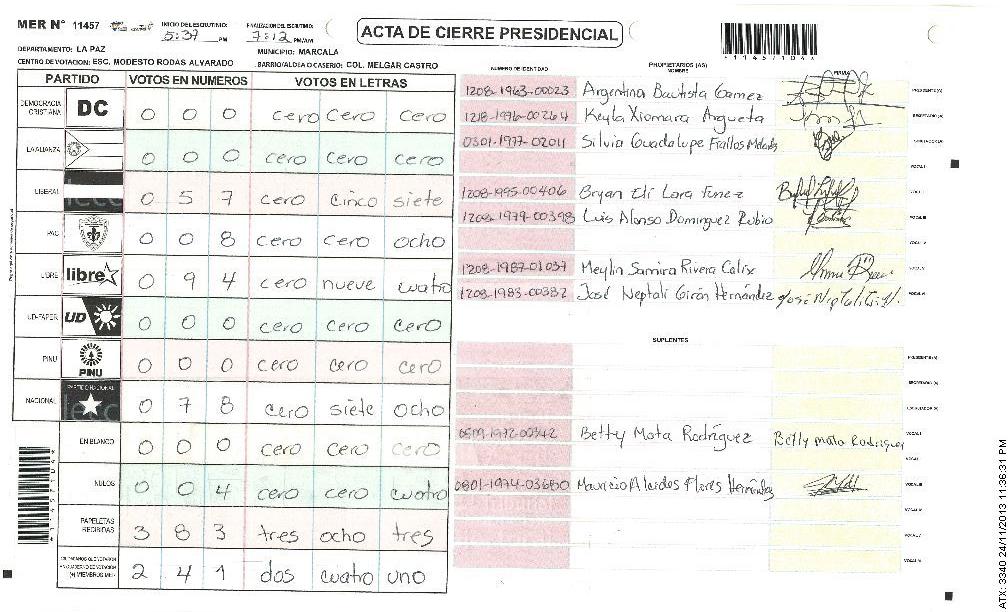 MER N° 11457
INICIO DEL ESCRUTINIO: 5:37 PM
FINALIZACION DEL ESCRUTINIO: 7:12 PM/AM
ACTA DE CIERRE PRESIDENCIAL
*11457104*
DEPARTAMENTO: LA PAZ
MUNICIPIO: MARCALA
CENTRO DE VOTACION: ESC. MODESTO RODAS ALVARADO
BARRIO/ALDEA O CASERIO: COL. MELGAR CASTRO
PARTIDO VOTOS EN NUMEROS VOTOS EN LETRAS
DEMOCRACIA CRISTIANA DC 0 0 0 cero cero cero
LA ALIANZA 0 0 0 cero cero cero
LIBERAL 0 5 7 cero cinco siete
PAC 0 0 8 cero cero ocho
LIBRE libre 0 9 4 cero nueve cuatro
UD-FAPER UD 0 0 0 cero cero cero
PINU PINU 0 0 0 cero cero cero
NACIONAL PARTIDO NACIONAL 0 7 8 cero siete ocho
EN BLANCO 0 0 0 cero cero cero
NULOS 0 0 4 cero cero cuatro
PAPELETAS RECIBIDAS 3 8 3 tres ocho tres
CIUDADANOS QUE VOTARON EN CUADERNO DE VOTACION (+) MIEMBROS MER 2 4 1 dos cuatro uno
*11457104*
NUMERO DE IDENTIDAD PROPIETARIOS (AS) NOMBRE FIRMA
1208-1963-00023 Argentina Bautista Gamez PRESIDENTE(A)
1218-1976-00264 Keyla Xiomara Argueta SECRETARIO (A)
0301-1977-02011 Silvia Guadalupe Frallos ESCRUTADOR (A)
VOCAL I
1208-1995-00406 Bryan Eli Lara Funez
1208-1979-00398 Luis Alonso Dominguez Rubio VOCAL III
VOCAL IV
1208-1987-01037 Meylin Samira Rivera Calix VOCAL V
1208-1983-00382 José Neptali Girón Hernández VOCAL VI
SUPLENTES
PRESIDENTE(A)
SECRETARIO (A)
ESCRUTADOR (A)
-1972-00342 Betty Mata Rodríguez Betty mata Rodriguez VOCAL I
VOCAL II
0801-1974-03680 Mauricio Alcides Flores Hernández VOCAL III
VOCAL IV
VOCAL V
VOCAL VI
ATX: 3340 24/11/2013 11:36:31 PM